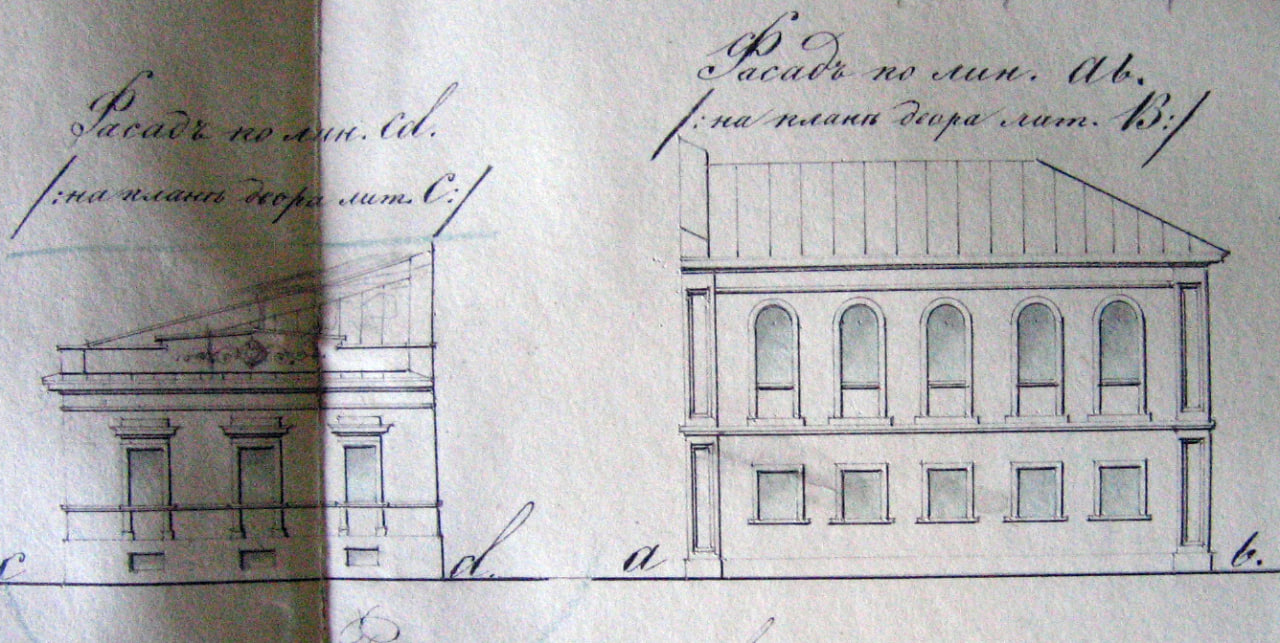 Фасадъ по лин. cd.
/:на планѣ двора лит. С:/
Фасадъ по лин. ab.
/:на планѣ двора лит. B:/
c
d.
a
b.